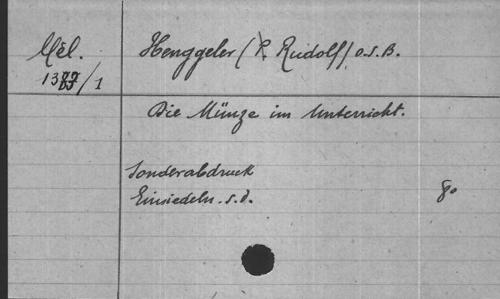 Mél. Henggeler (P. Rudolf) O.S.B.
/1
Die Münze im Unterricht.
Sonderabdruck
Einsiedeln. s.d. 8°